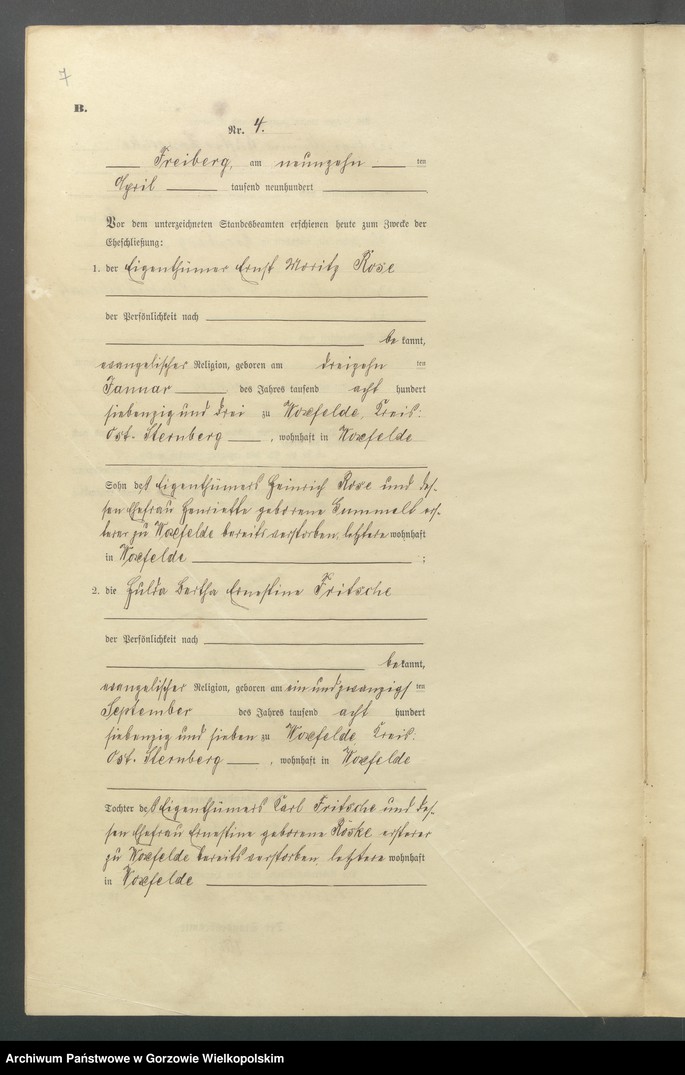 7
B.
Nr. 4.
Freiberg, am neunzehn ten
April tausend neunhundert ,
Vor dem unterzeichneten Standesbeamten erschienen heute zum Zwecke der
Eheschließung:
1. der Eigenthümer Ernst Moritz Rose
der Persönlichkeit nach
be kannt,
evangelischer Religion, geboren am dreizehn ten
Januar des Jahres tausend acht hundert
siebenzig und drei zu Woxfelde, Kreis:
Ost-Sternberg , wohnhaft in Woxfelde
Sohn des Eigenthümers Heinrich Rose und des-
sen Ehefrau Henriette geborene Gummelt ers-
terer zu Woxfelde bereits verstorben, letztere wohnhaft
in Woxfelde ;
2. die Hulda Bertha Ernestine Fritsche
der Persönlichkeit nach
be kannt,
evangelischer Religion, geboren am ein und zwanzigs ten
September des Jahres tausend acht hundert
siebenzig und sieben zu Woxfelde Kreis:
Ost-Sternberg , wohnhaft in Woxfelde
Tochter des Eigenthümers Carl Fritsche und des-
sen Ehefrau Ernestine geborene Röske ersterer
zu Woxfelde bereits verstorben letztere wohnhaft
in Woxfelde
Archiwum Państwowe w Gorzowie Wielkopolskim